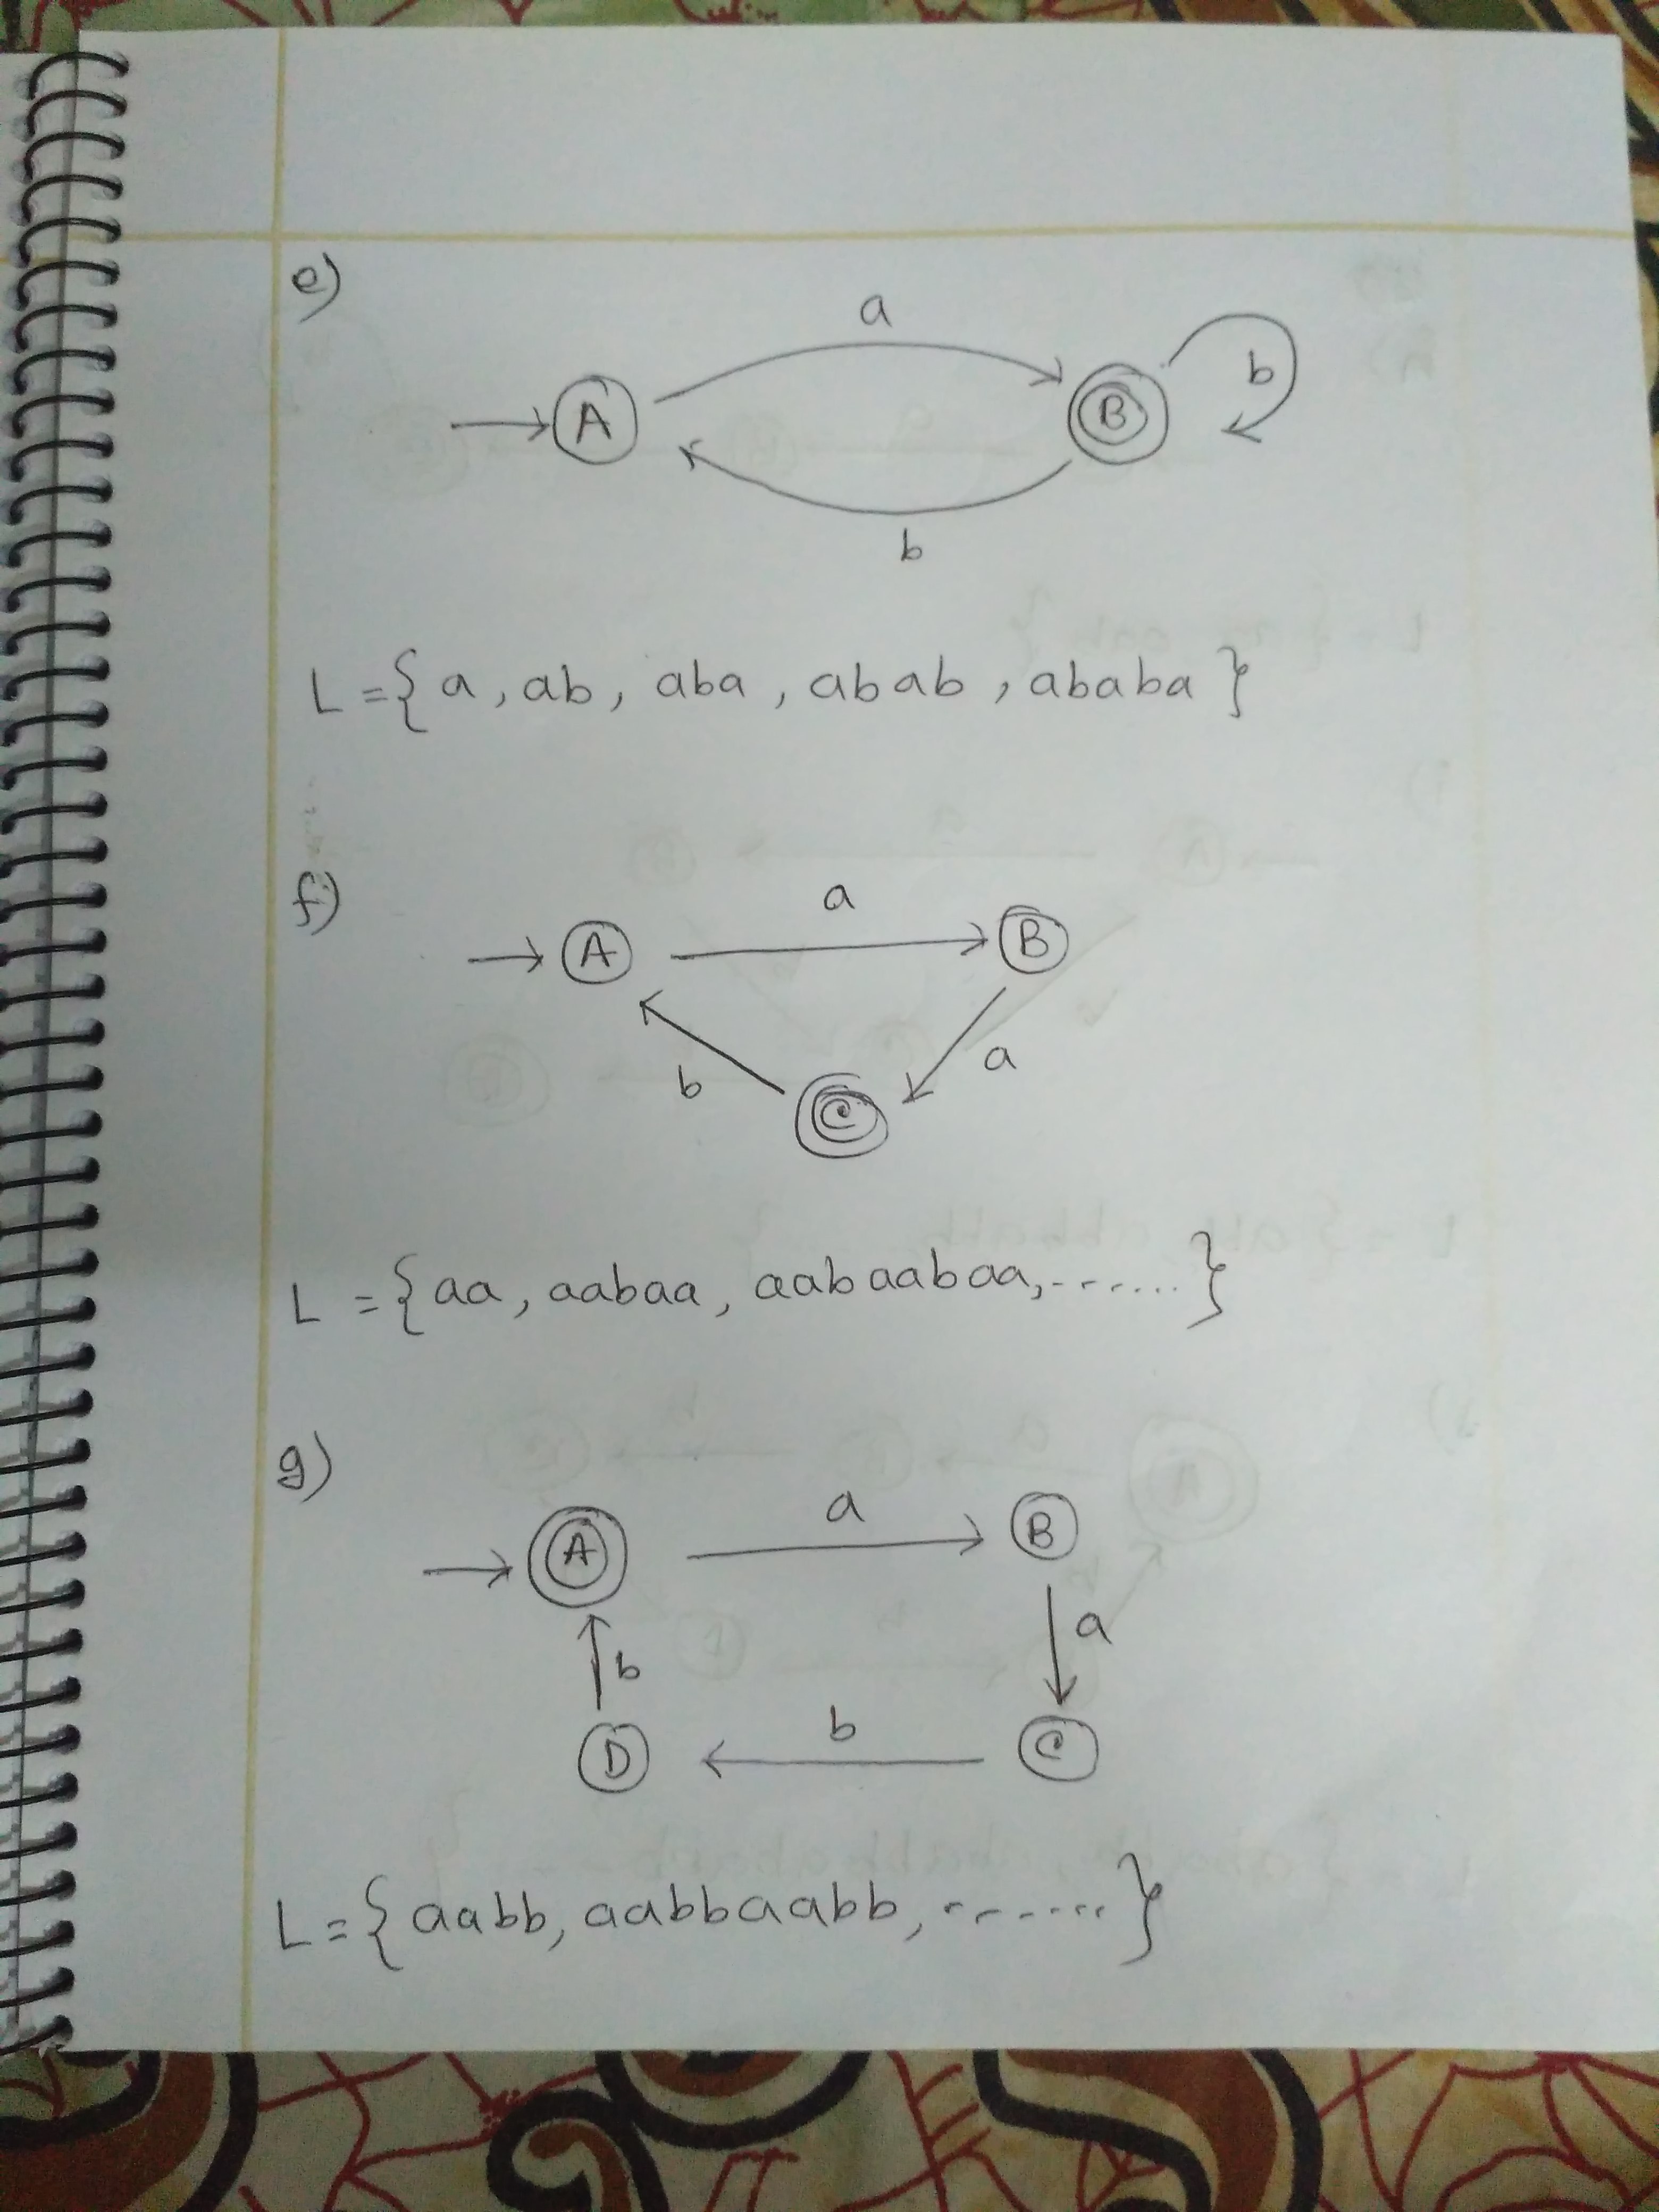 e)
a
A
B
b
b
L = { a, ab, aba, abab, ababa }
f)
a
A
B
a
b
C
L = { aa, aabaa, aabaabaa, ....... }
g)
a
A
B
a
b
b
D
C
L = { aabb, aabbaabb, ........ }